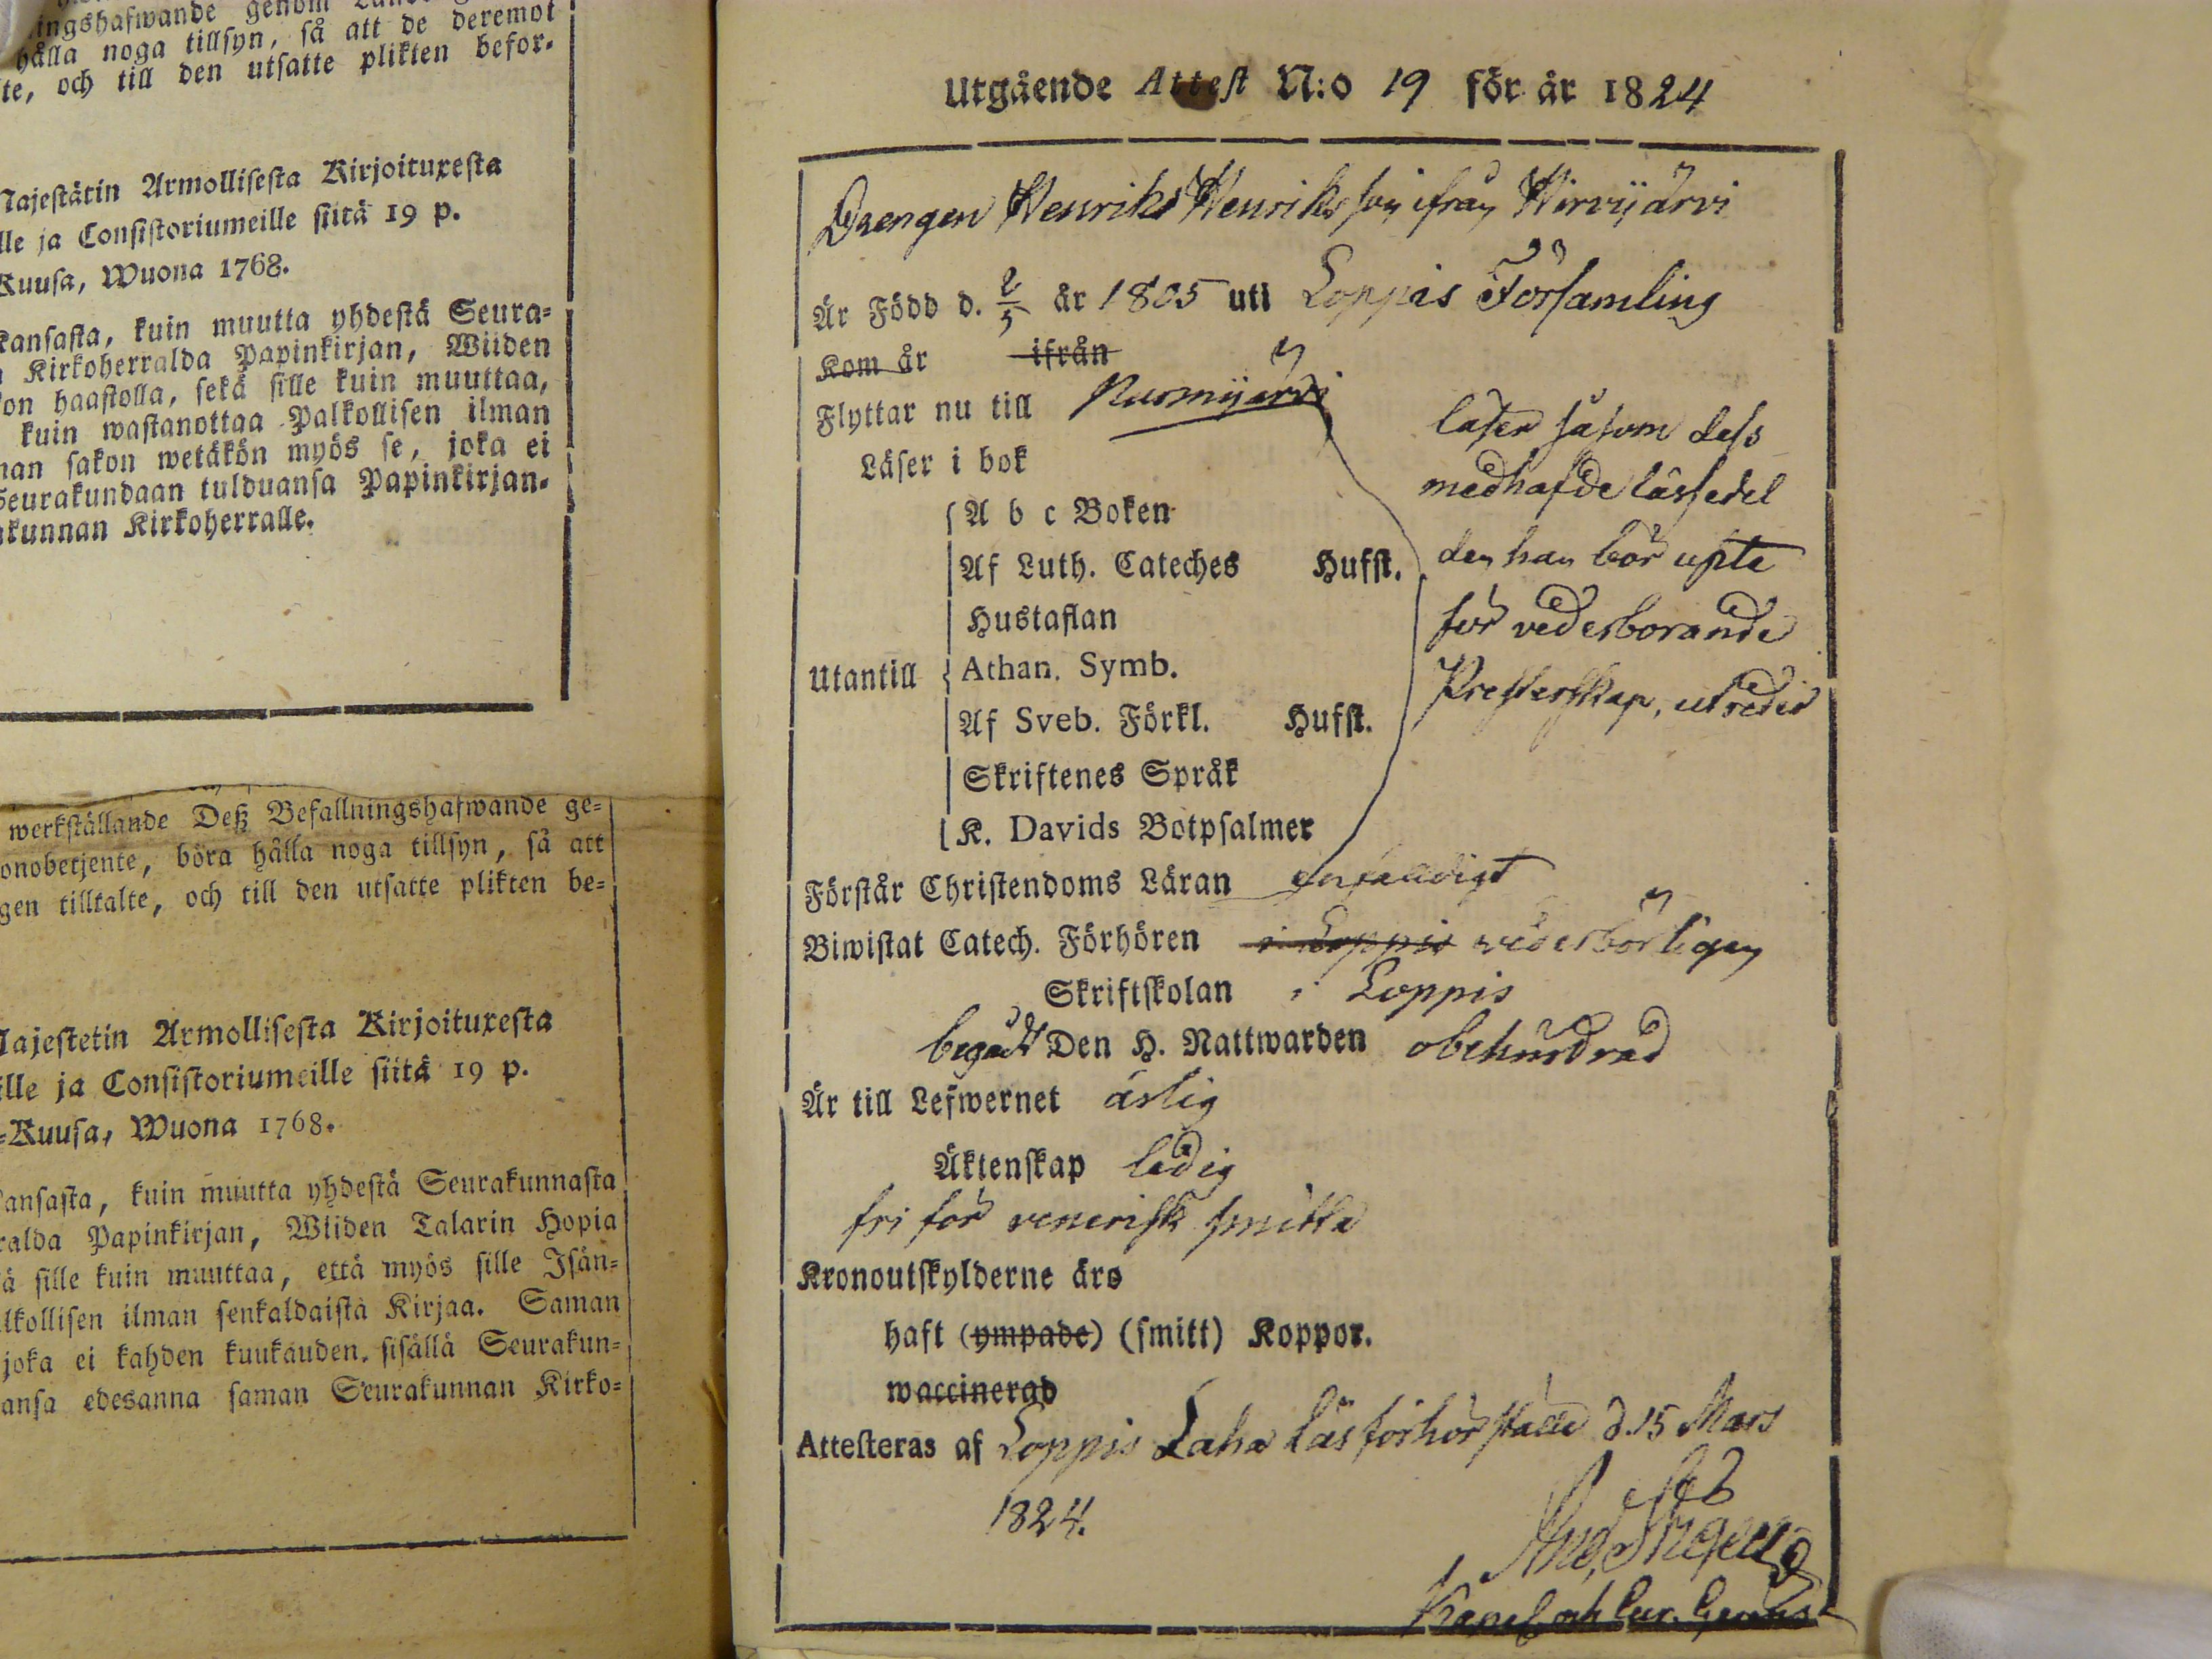 hålla noga tillsyn, så att de deremot
te, och till den utsatte plikten befor-
Majestätin Armollisesta Kirjoituxesta
lle ja Consistoriumeille siitä 19 p.
Kuusa, Wuona 1768.
kansasta, kuin muutta yhdestä Seura-
Kirkoherralda Papinkirjan, Wiiden
on haastolla, sekä sille kuin muuttaa,
kuin wastanottaa Palkollisen ilman
man sakon wetäkön myös se, joka ei
Seurakundaan tulduansa Papinkirjan-
kunnan Kirkoherralle.
werkställande Deß Befallningshafwande ge-
onobetjente, böra hålla noga tillsyn, så att
gen tilltalte, och till den utsatte plikten be-
Majestetin Armollisesta Kirjoituxesta
ille ja Consistoriumeille siitä 19 p.
-Kuusa, Wuona 1768.
ansasta, kuin muutta yhdestä Seurakunnasta
ralda Papinkirjan, Wiiden Talarin Hopia
ä sille kuin muuttaa, että myös sille Isän-
lkollisen ilman senkaldaista Kirjaa. Saman
joka ei kahden kuukauden sisällä Seurakun-
ansa edesanna saman Seurakunnan Kirko-
Utgående Attest N:o 19 för år 1824
Drengen Henrik Henriksson ifrån Hirvijärvi
Är Född d. 2/5 år 1805 uti Loppis Församling
Kom år ifrån
Flyttar nu till Nurmijärvi
Läser i bok
läser såsom dess
medhafde läsesedel
A b c Boken
Af Luth. Cateches Hufst.
den han bör upte
Hustaflan
för vederborande
Utantill Athan. Symb.
Presterskap, utreder
Af Sveb. Förkl. Hufst.
Skriftenes Språk
K. Davids Botpsalmer
Förstår Christendoms Läran enfaldigt
Biwistat Catech. Förhören i Loppis vederbörligen
Skriftskolan i Loppis
begådt Den H. Nattwarden obehindrad
Är till Lefwernet ärlig
Äktenskap ledig
fri för venerisk smitta
Kronoutskylderne äro
haft (ympade) (smitt) Koppor.
waccinerad
Attesteras af Loppis Laha läsförhörställe d. 15 Mars
1824.